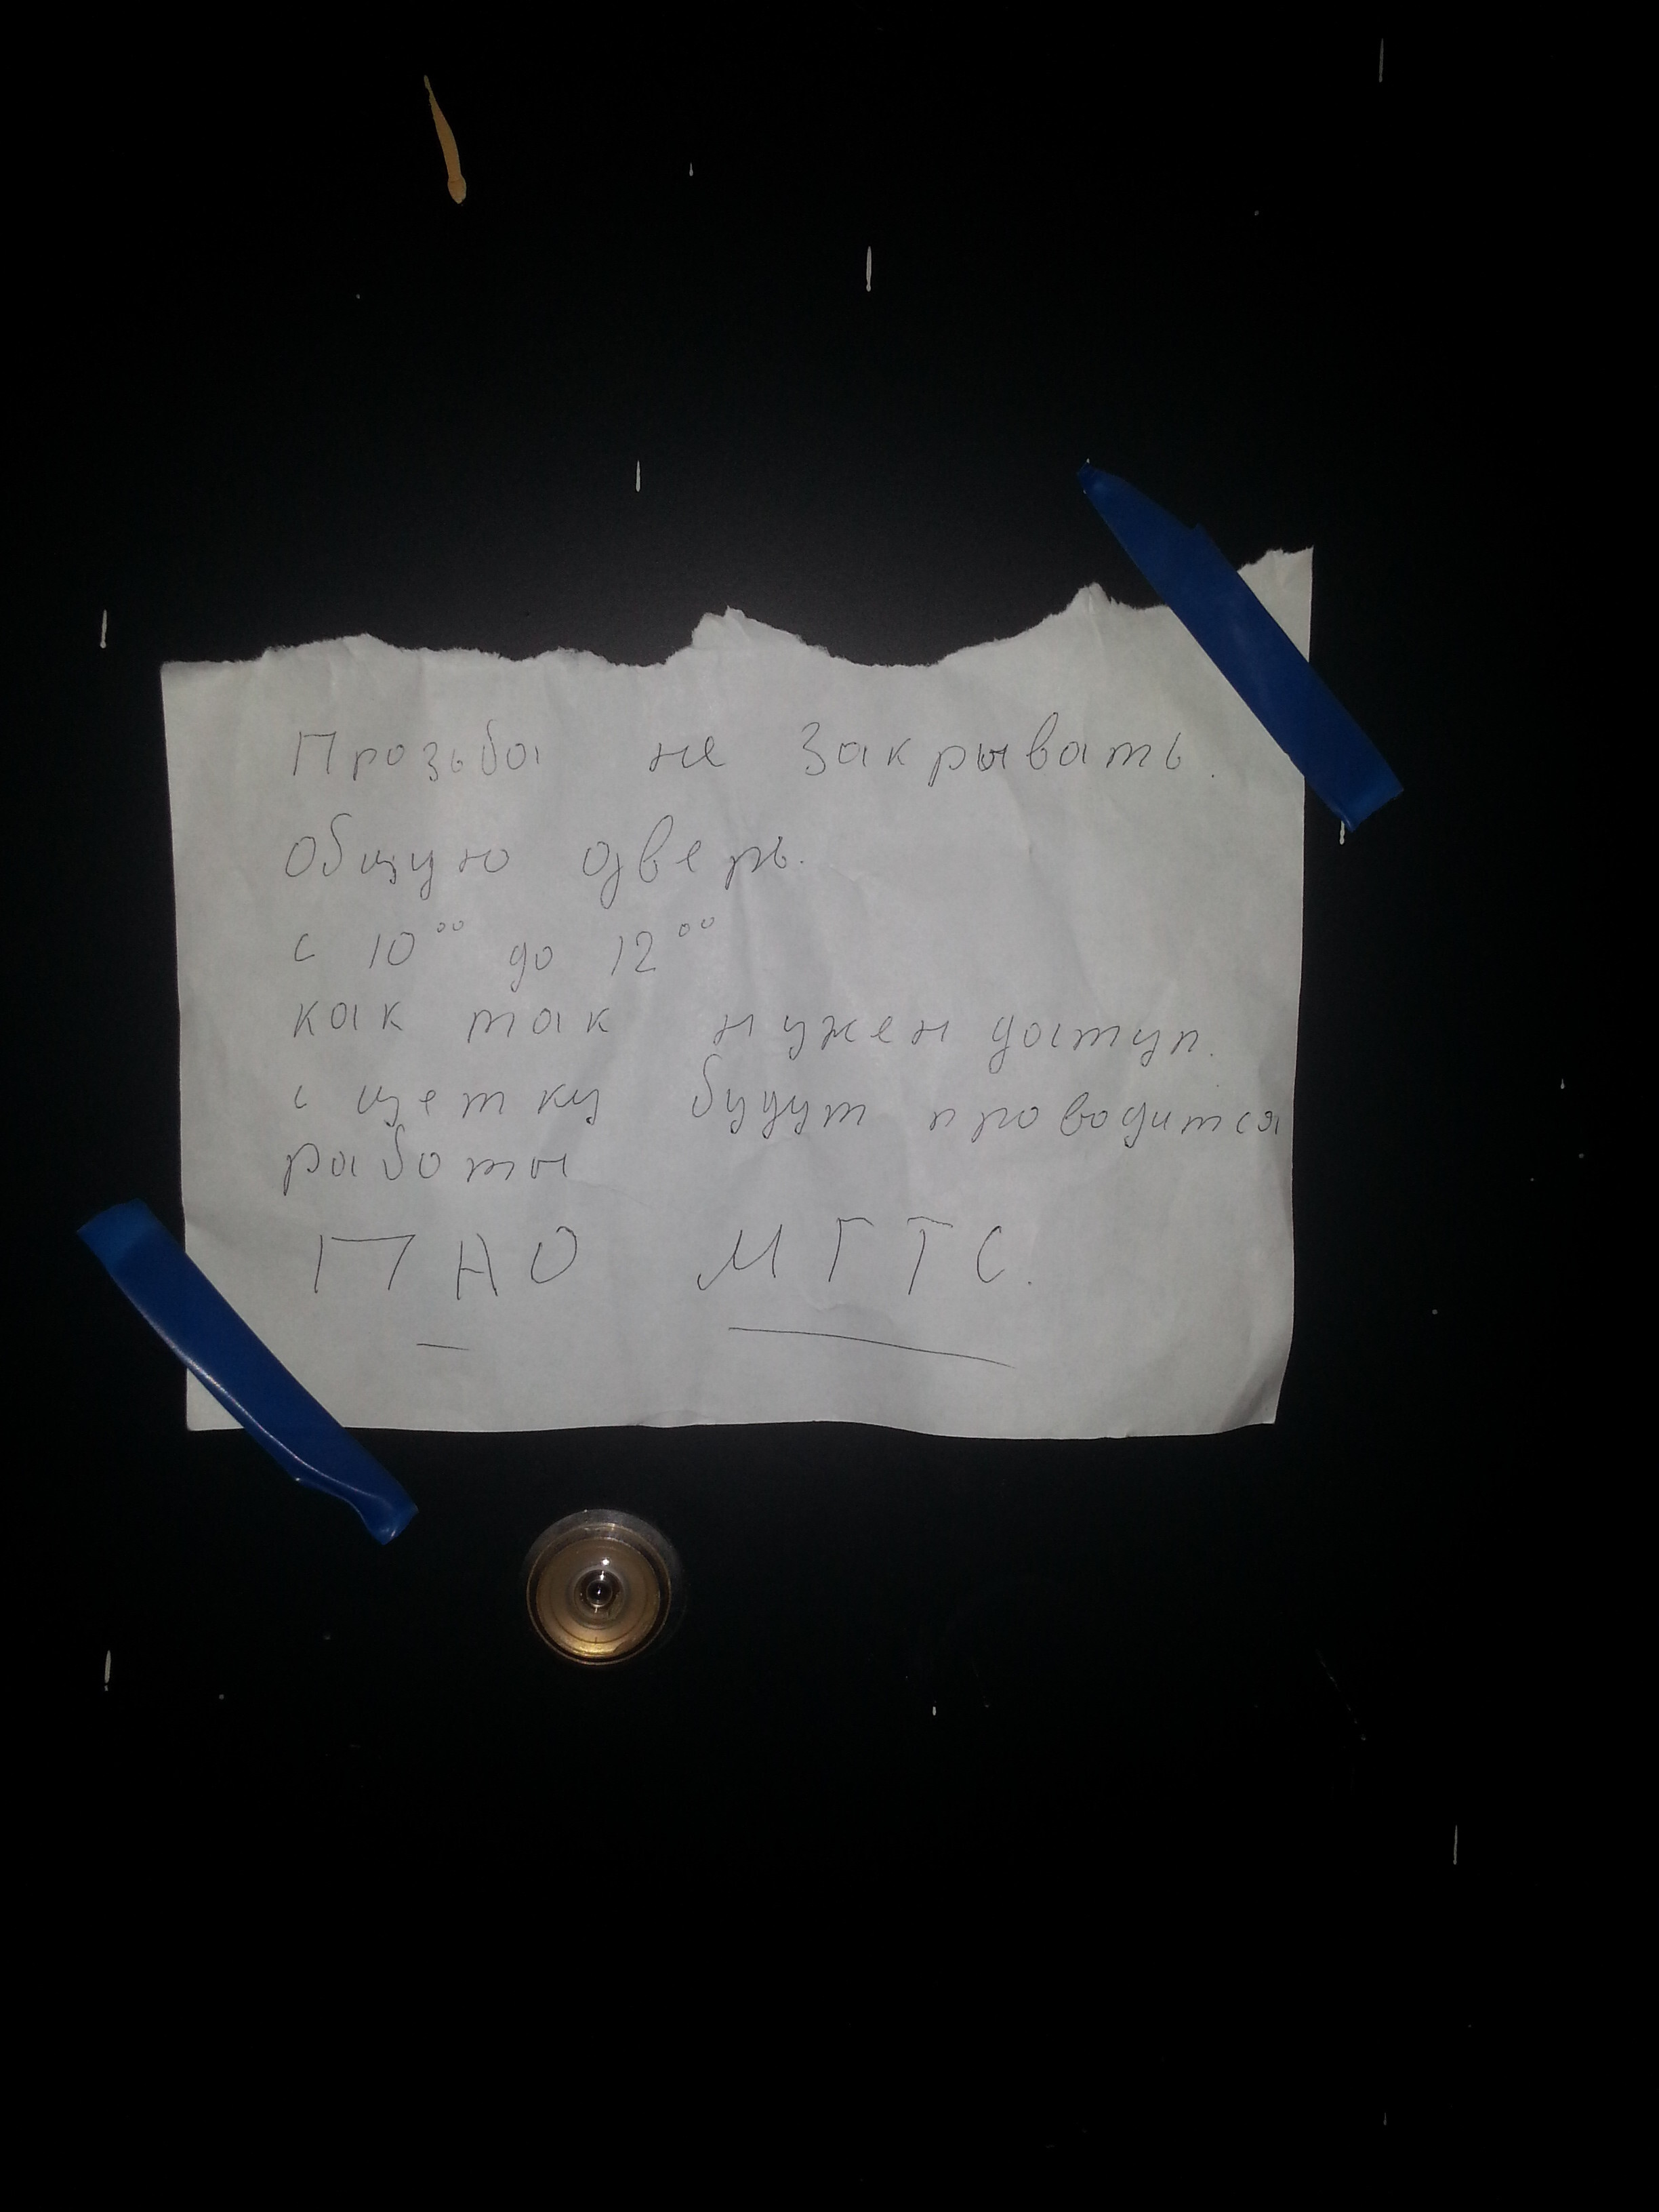 Прозьба не закрывать.
общую дверь.
с 10⁰⁰ до 12⁰⁰
как так нужен доступ.
с щетку будут проводится
работы
ПАО МГТС.